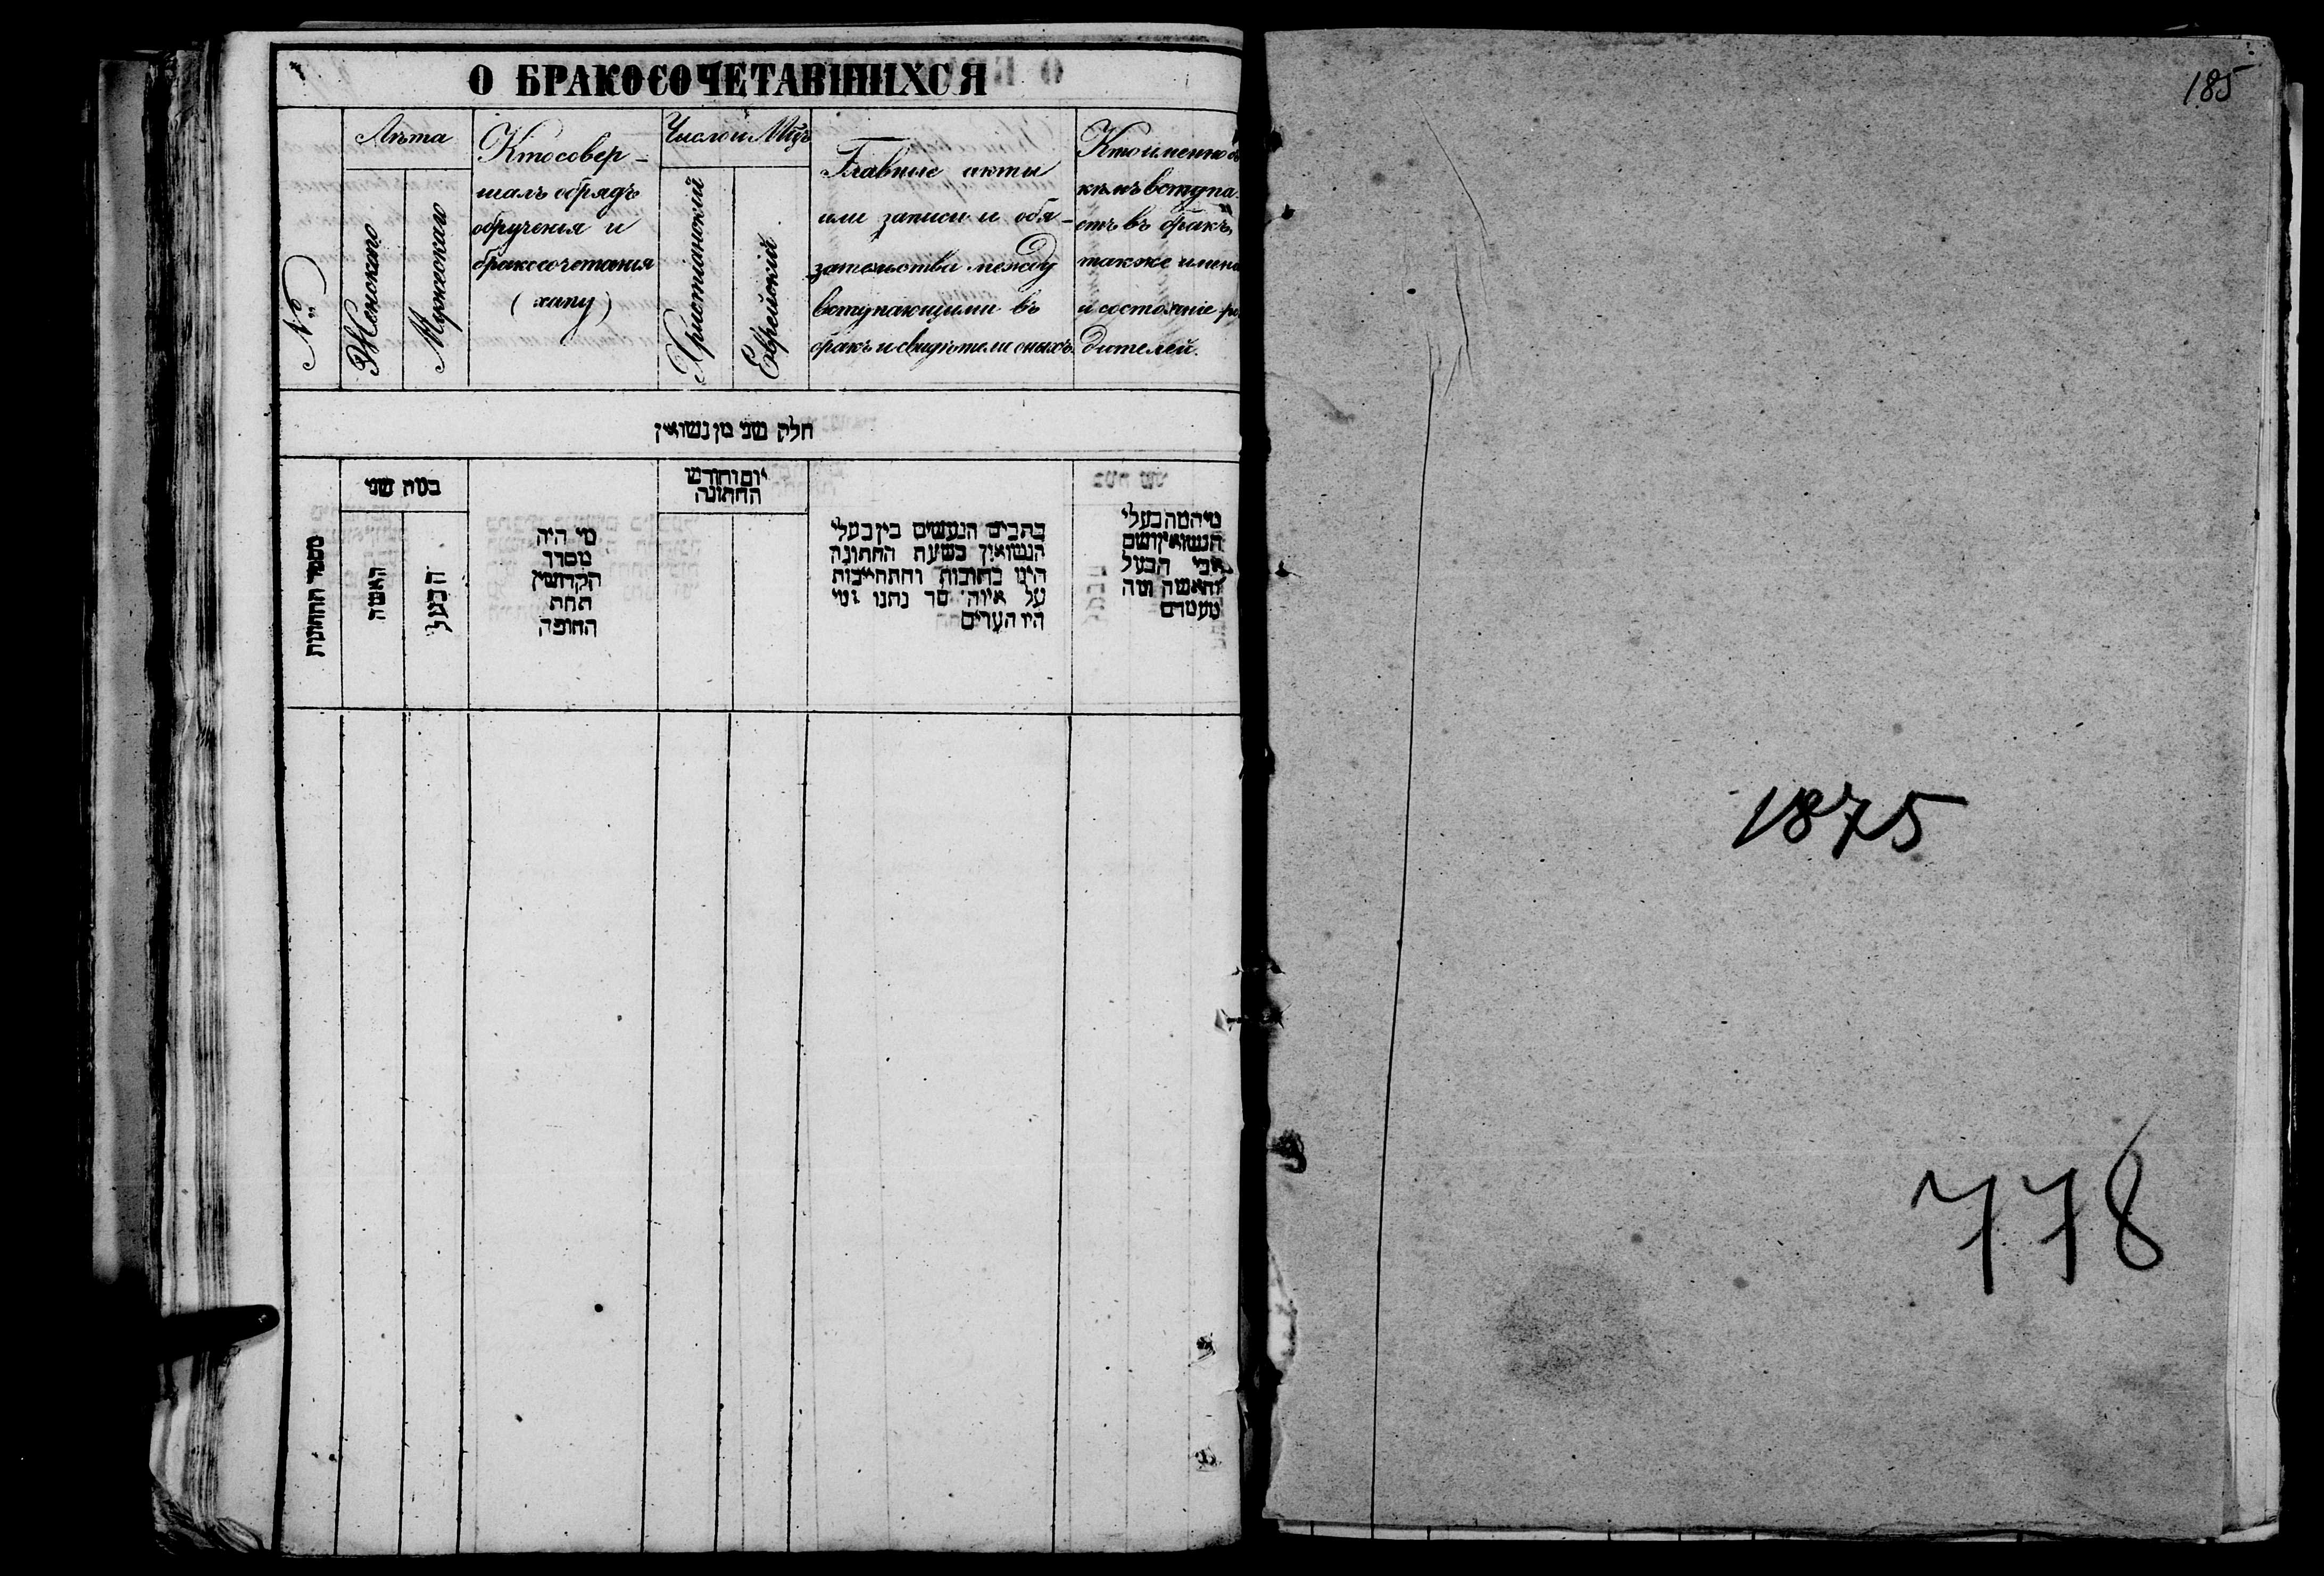 О БРАКОСОЧЕТАВШИХСЯ
№
Лѣта
Женскаго
Мужскаго
Кто совер-
шалъ обрядъ
обрученія и
бракосочетанія
(хупу)
Число и Мцъ
Христіанскій
Еврейскій
Главные акты
или записи и обя-
зательства между
вступающими въ
бракъ и свидѣтели оныхъ.
Кто именно съ
кѣмъ вступа-
етъ въ бракъ,
также имена
и состояніе ро
дителей.
חלק שני מן נשואין
מספר החתונות
במה שני
האשה
הבעל
מי היה
מסדר
הקדושין
תחת
החופה
יום וחודש
החתונה
כתבים הנעשים בין בעלי
הנשואין בשעת החתונה
היינו כתובות והתחייבות
על איזה סך נתנו ומי
היו העדים
מי המה בעלי
הנשואין ושם
אבי הבעל
והאשה ומה
מעמדם
185
1875
778